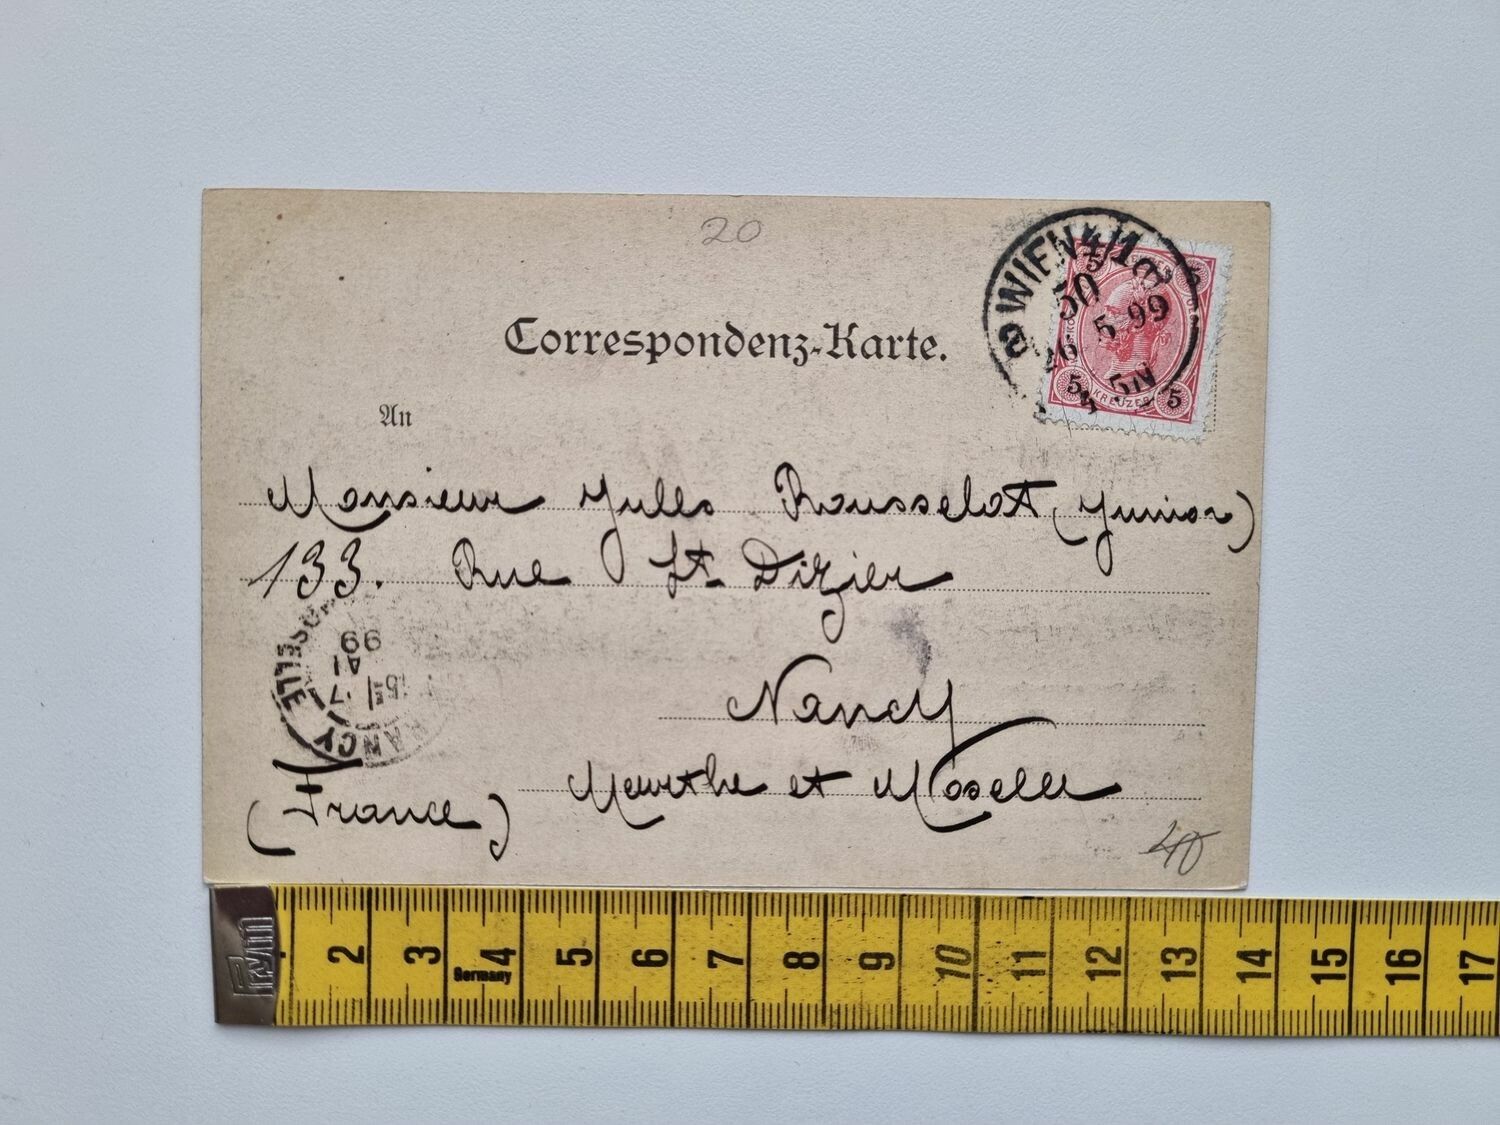 20
Correspondenz-Karte.
WIEN 4/1
50
6 5 99
5 N
5
5
5
KREUZER
An
Monsieur Jules Rousselot (Junior)
133. Rue St Dizier
Nancy
Meurthe et Moselle
(France)
NANCY
MOSELLE
17
99
40
Prym
Germany
2 3 4 5 6 7 8 9 10 11 12 13 14 15 16 17